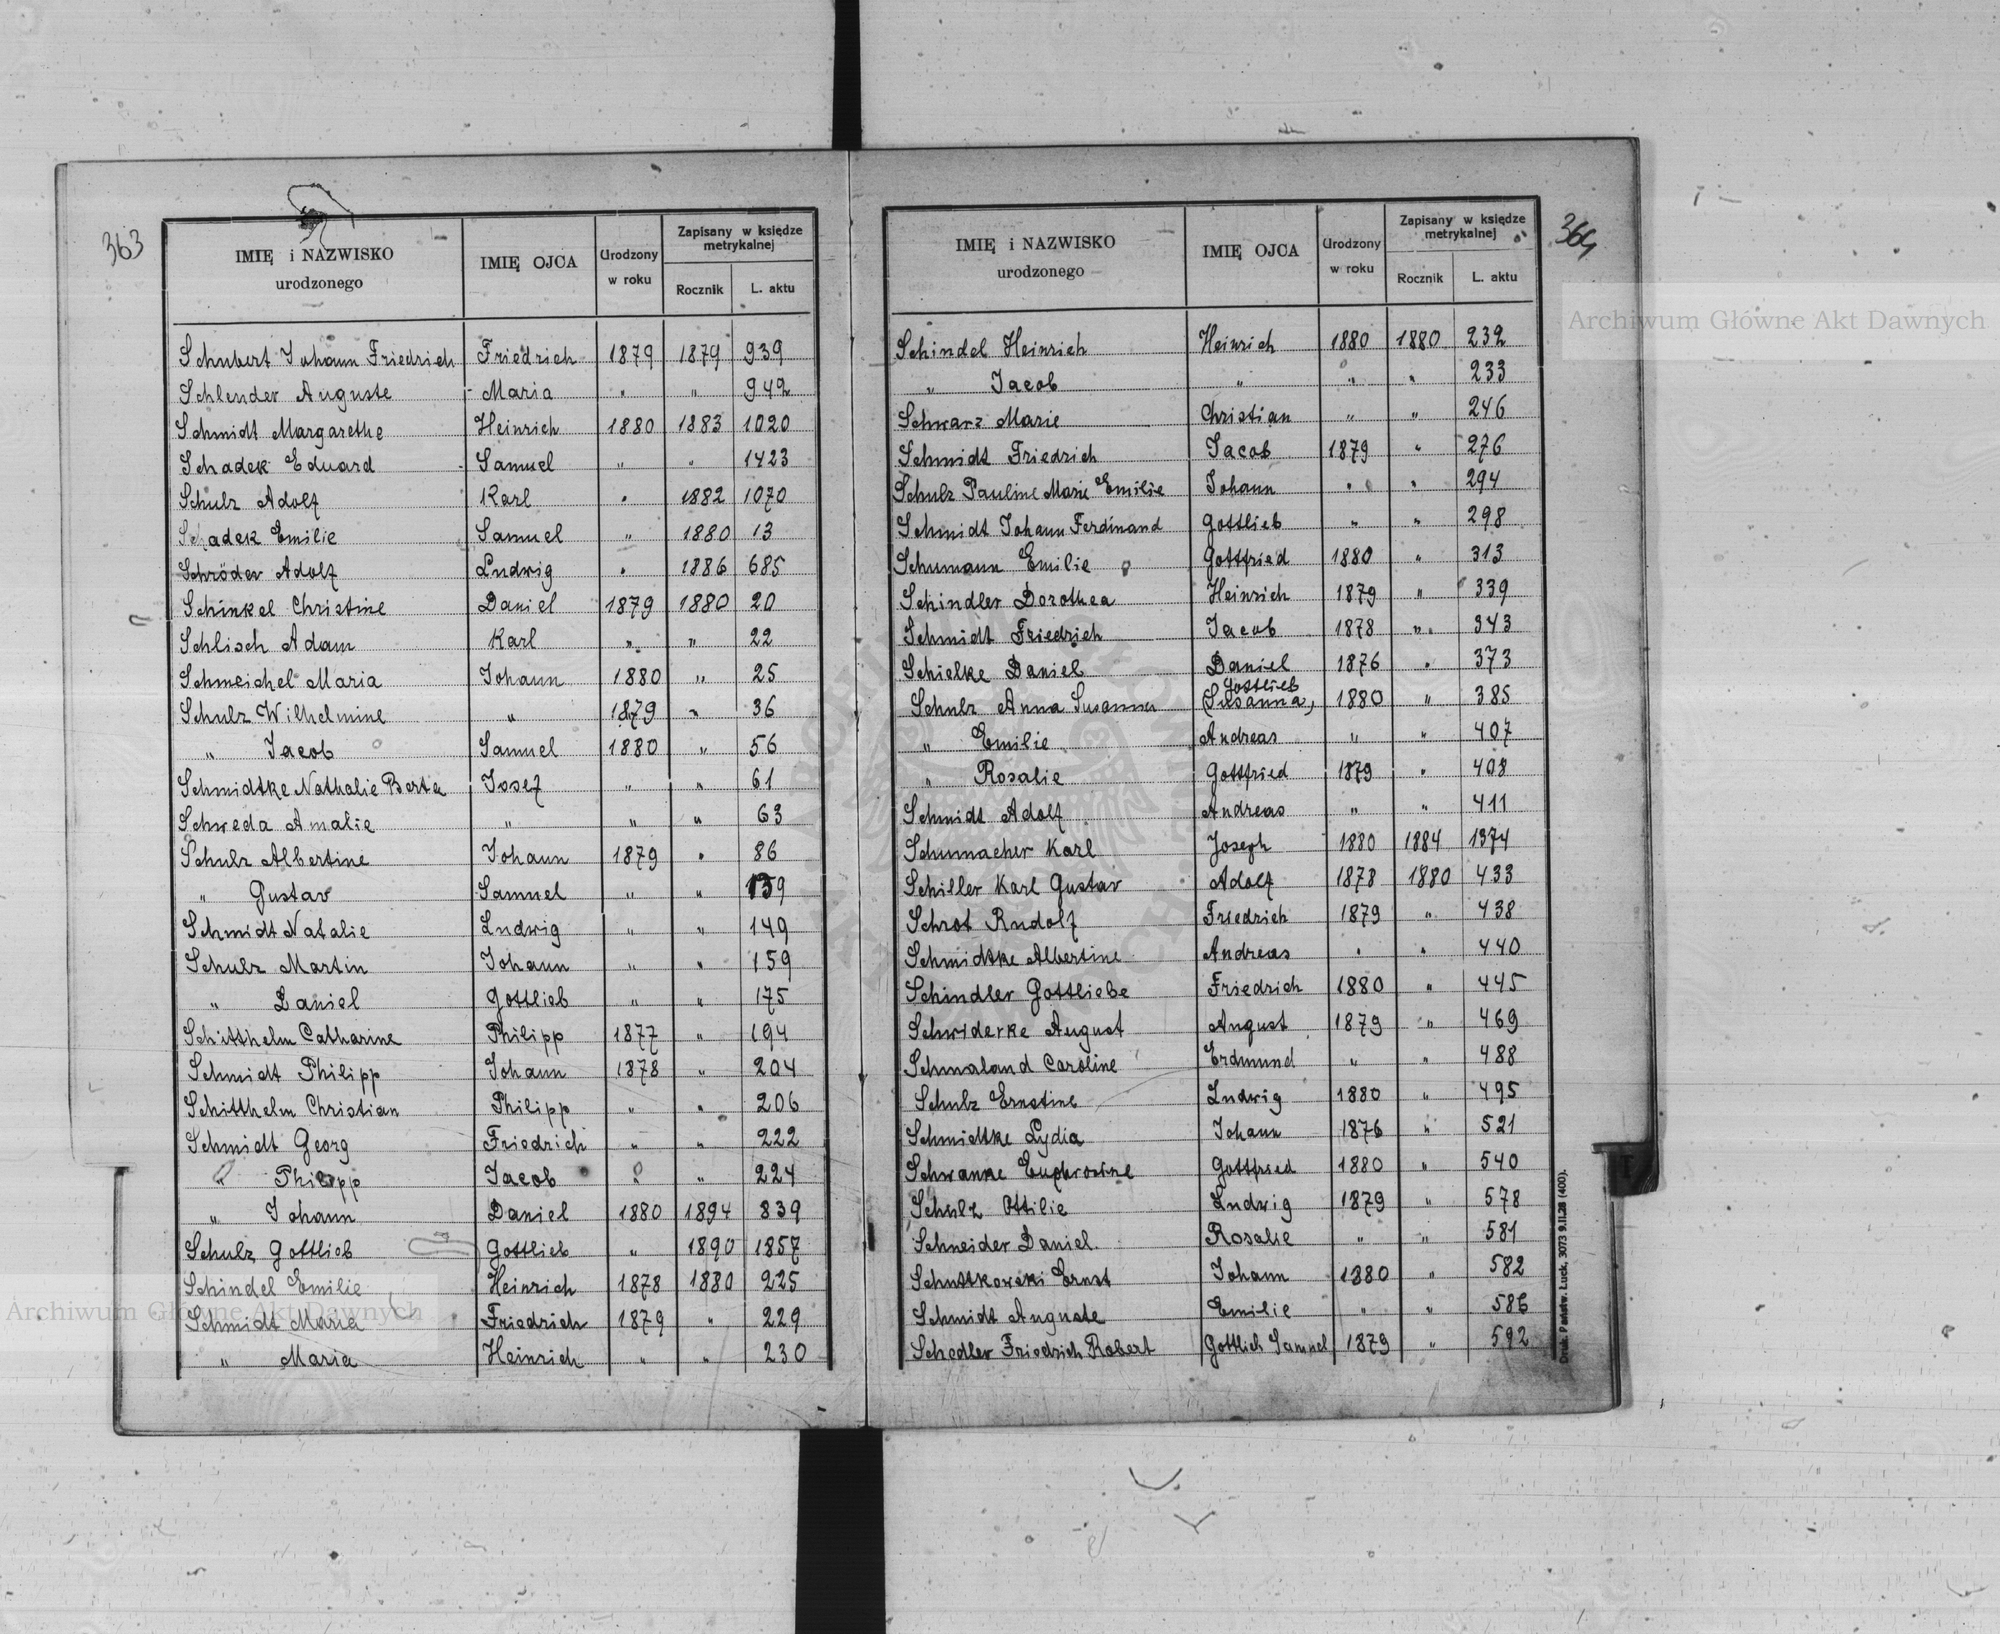 363
IMIĘ i NAZWISKO urodzonego | IMIĘ OJCA | Urodzony w roku | Zapisany w księdze metrykalnej
Rocznik | L. aktu
Schubert Johann Friedrich Friedrich 1879 1879 939
Schlender Auguste - Maria " " 942
Schmidt Margarethe Heinrich 1880 1883 1020
Schadek Eduard Samuel " " 1423
Schulz Adolf Karl " 1882 1070
Schadek Emilie Samuel " 1880 13
Schröder Adolf Ludwig " 1886 685
Schinkel Christine Daniel 1879 1880 20
Schlisch Adam Karl " " 22
Schmeichel Maria Johann 1880 " 25
Schulz Wilhelmine " 1879 " 36
" Jacob Samuel 1880 " 56
Schmidtke Nathalie Berta Josef " " 61
Schweda Amalie " " " 63
Schulz Albertine Johann 1879 " 86
" Gustav Samuel " " 139
Schmidt Natalie Ludwig " " 149
Schulz Martin Johann " " 159
" Daniel Gottlieb " " 175
Schitthelm Catharine Philipp 1877 " 194
Schmidt Philipp Johann 1878 " 204
Schitthelm Christian Philipp " " 206
Schmidt Georg Friedrich " " 222
" Philipp Jacob " " 224
" Johann Daniel 1880 1894 839
Schulz Gottlieb Gottlieb " 1890 1857
Schindel Emilie Heinrich 1878 1880 225
Schmidt Maria Friedrich 1879 " 229
" Maria Heinrich " " 230
364
IMIĘ i NAZWISKO urodzonego | IMIĘ OJCA | Urodzony w roku | Zapisany w księdze metrykalnej
Rocznik | L. aktu
Schindel Heinrich Heinrich 1880 1880 232
" Jacob " " " 233
Schwarz Marie Christian " " 246
Schmidt Friedrich Jacob 1879 " 276
Schulz Pauline Marie Emilie Johann " " 294
Schmidt Johann Ferdinand Gottlieb " " 298
Schumann Emilie Gottfried 1880 " 313
Schindler Dorothea Heinrich 1879 " 339
Schmidt Friedrich Jacob 1878 " 343
Schielke Daniel Daniel 1876 " 373
Gottlieb
Schulz Anna Susanna (Susanna) 1880 " 385
" Emilie Andreas " " 407
" Rosalie Gottfried 1879 " 408
Schmidt Adolf Andreas " " 411
Schumacher Karl Joseph 1880 1884 1374
Schiller Karl Gustav Adolf 1878 1880 433
Schrot Rudolf Friedrich 1879 " 438
Schmidtke Albertine Andreas " " 440
Schindler Gottliebe Friedrich 1880 " 445
Schwiderke August August 1879 " 469
Schmaland Caroline Erdmund " " 488
Schulz Ernstine Ludwig 1880 " 495
Schmidtke Lydia Johann 1876 " 521
Schwanke Euphrosine Gottfried 1880 " 540
Schulz Ottilie Ludwig 1879 " 578
Schneider Daniel Rosalie " " 581
Schustkowski Ernst Johann 1880 " 582
Schmidt Auguste Emilie " " 586
Schedler Friedrich Robert Gottlieb Samuel 1879 " 592
Druk. Państw. Łuck, 3073 9.II.28 (400).
Archiwum Główne Akt Dawnych
Archiwum Główne Akt Dawnych